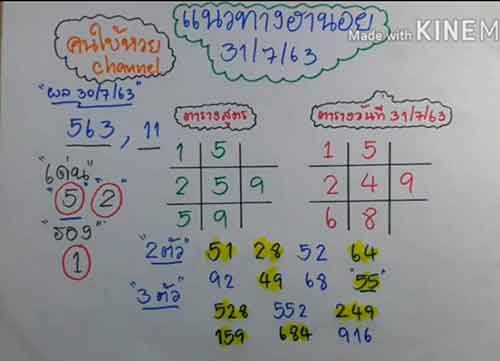 แนวทางฮานอย
31/7/63
Made with KINEM
คนใบ้หวย
channel
"ผล 30/7/63"
563, 11
"เด่น"
5 2
"รอง"
1
ตารางสูตร
1 5
2 5 9
5 9
ตารางวันที่ 31/7/63
1 5
2 4 9
6 8
"2ตัว" 51 28 52 64
92 49 68 "55"
"3ตัว"
528 552 249
159 684 916